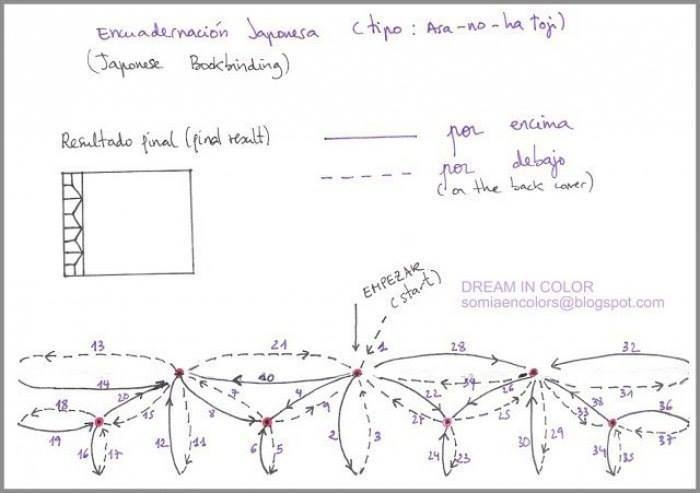 Encuadernación Japonesa (tipo: Asa-no-ha Toji)
(Japanese Bookbinding)
Resultado final (final result)
por encima
por debajo
(on the back cover)
EMPEZAR
(start)
DREAM IN COLOR
somiaencolors@blogspot.com
13 21 1 28 32
14 20 10 4 22 34 26 38 31
18 15 8 7 9 27 25 33 36
19 16 17 12 11 6 5 2 3 24 23 30 29 34 35 37